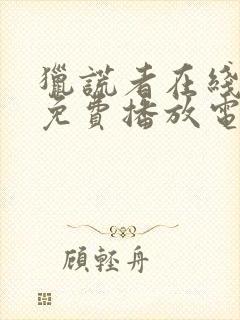 獵謊者在綫
免費播放電
顧輕舟